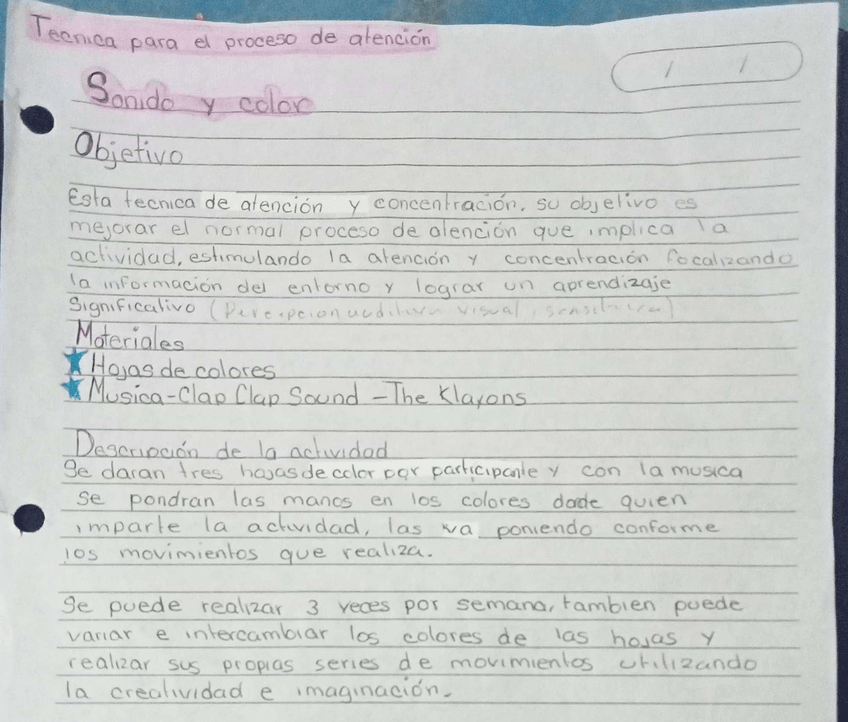 Tecnica para el proceso de atención
Sonido y color
Objetivo
Esta tecnica de atención y concentración, su objetivo es
mejorar el normal proceso de atención que implica la
actividad, estimulando la atención y concentración focalizando
la información del entorno y lograr un aprendizaje
Significativo (Percepcion auditiva visual, sensitiva)
Materiales
Hojas de colores
Musica - Clap Clap Sound - The Klaxons
Descripción de la actividad
Se daran tres hojas de color por participante y con la musica
se pondran las manos en los colores donde quien
imparte la actividad, las va poniendo conforme
los movimientos que realiza.
Se puede realizar 3 veces por semana, tambien puede
variar e intercambiar los colores de las hojas y
realizar sus propias series de movimientos utilizando
la creatividad e imaginación.